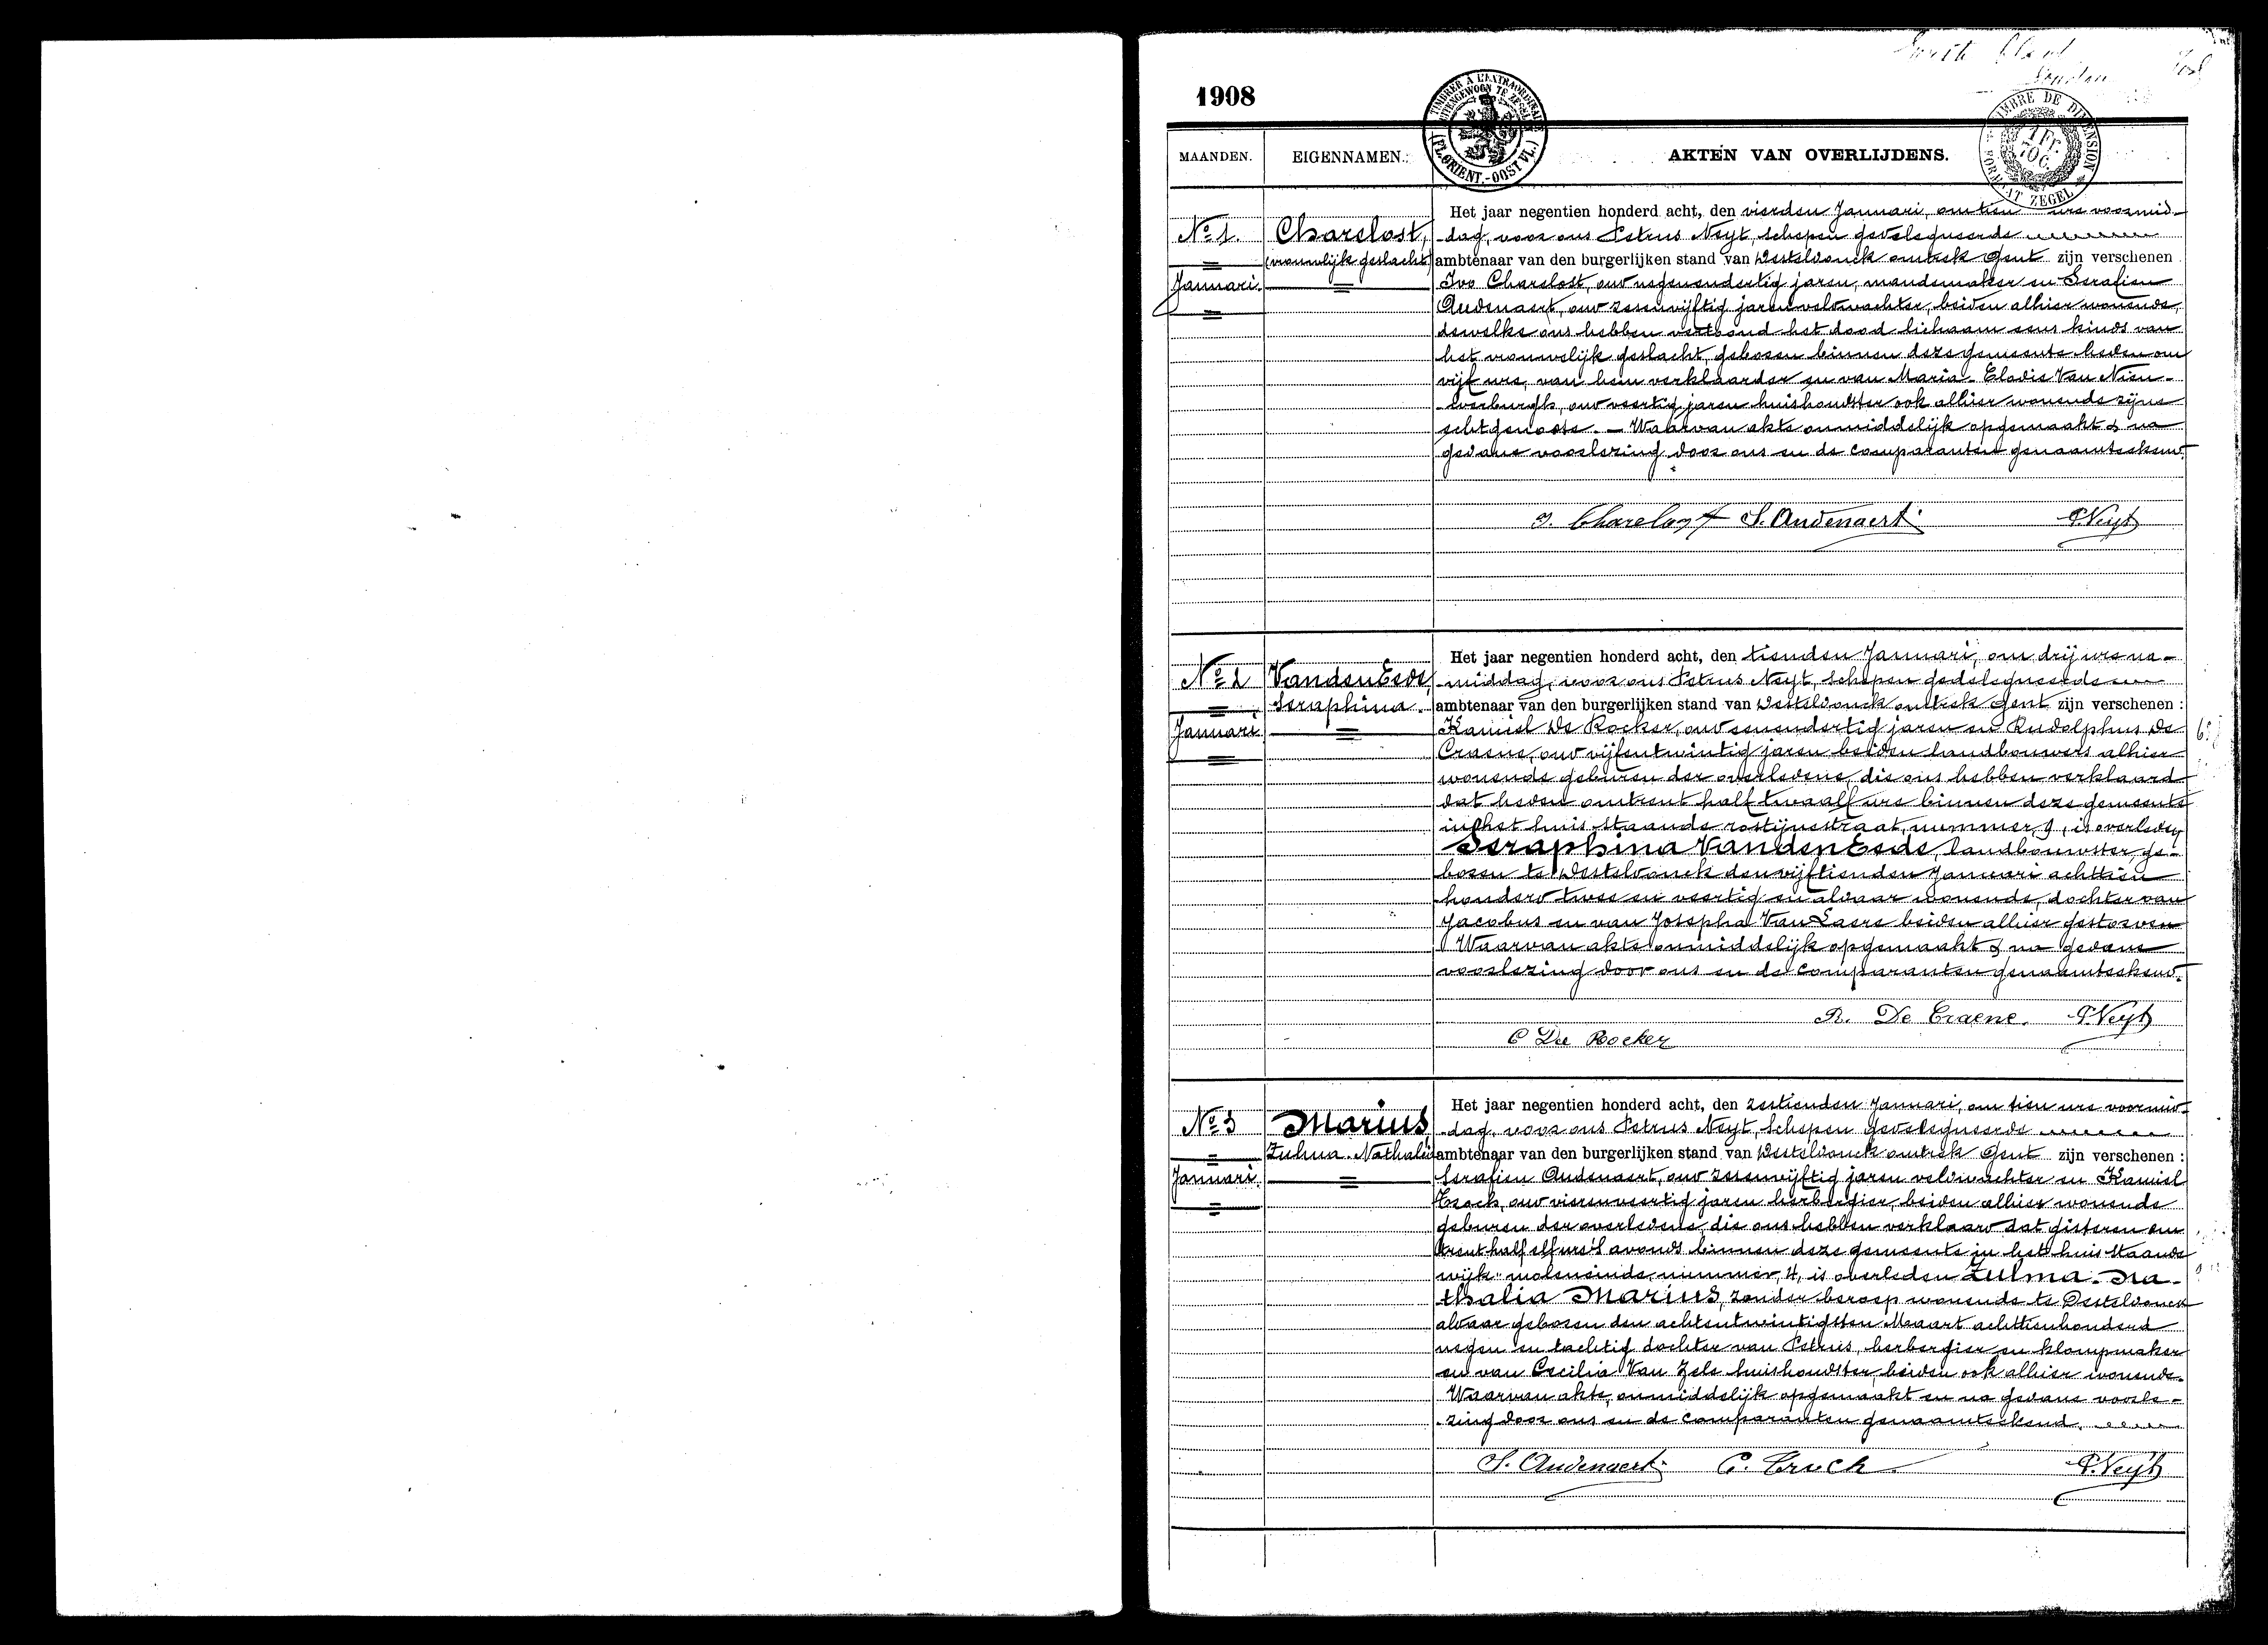 1908
TIMBRE DE DIMENSION
1 Fr.
FORMAAT ZEGEL
(FL. ORIENT.-OOST VL.)
MAANDEN.
EIGENNAMEN.
AKTEN VAN OVERLIJDENS.
No 1.
Januari.
Charelost,
(vrouwelijk geslacht)
Het jaar negentien honderd acht, den vierden Januari, om tien ure voormid-
dag, voor ons Petrus Neyt, schepen gedelegueerde
ambtenaar van den burgerlijken stand van Desteldonck omtrek Gent zijn verschenen
Ivo Charelost, oud negenendertig jaren, mandemaker en Serafien
Audenaert, oud zesenvijftig jaren veldwachter, beiden alhier wonende,
dewelke ons hebben vertoond het dood lichaam eens kinds van
het vrouwelijk geslacht, geboren binnen deze gemeente heden om
vijf ure, van hem verklaarder en van Maria-Elodie Van Nieu-
werburgh, oud veertig jaren huishoudster ook alhier wonende zijne
echtgenoote. — Waarvan akte onmiddelijk opgemaakt & na
gedane voorlezing door ons en de comparanten genaamteekend.
I. Charelost S. Audenaert P. Neyt
No 2
Januari
VandenEede,
Seraphina.
Het jaar negentien honderd acht, den tienden Januari, om drij ure na-
middag, voor ons Petrus Neyt, schepen gedelegueerde
ambtenaar van den burgerlijken stand van Desteldonck omtrek Gent zijn verschenen :
Kamiel De Rocker, oud eenendertig jaren en Rudolphus De
Craene, oud vijfentwintig jaren beiden landbouwers alhier
wonende geburen der overledene, die ons hebben verklaard
dat heden omtrent half twaalf ure binnen deze gemeente
in het huis staande rostijnestraat, nummer, 9, is overleden
Seraphina VandenEede, landbouwster, ge-
boren te Desteldonck den vijftienden Januari achttien
honderd twee en veertig en aldaar wonende, dochter van
Jacobus en van Josepha Van Laere beiden alhier gestorven
Waarvan akte onmiddelijk opgemaakt & na gedane
voorlezing door ons en de comparanten genaamteekend.
R. De Craene. P. Neyt
C De Rocker
No 3
Januari
Marius,
Zulma-Nathalie
Het jaar negentien honderd acht, den zestienden Januari, om tien ure voormid-
dag, voor ons Petrus Neyt, Schepen gedelegueerde
ambtenaar van den burgerlijken stand van Desteldonck omtrek Gent zijn verschenen :
Serafien Audenaert, oud zesenvijftig jaren veldwachter en Kamiel
oud vierenveertig jaren herbergier, beiden alhier wonende
geburen der overledene, die ons hebben verklaard dat gisteren om
trent half elf ure 's avonds binnen deze gemeente in het huis staande
wijk moleneinde, nummer, 4, is overleden Zulma-Na-
thalia Marius, zonder beroep wonende te Desteldonck
aldaar geboren den achtentwintigsten Maart achttienhonderd
negen en tachtig dochter van Petrus, herbergier en klompmaker
en van Cecilia Van Zele huishoudster, beiden ook alhier wonende.
Waarvan akte, onmiddelijk opgemaakt en na gedane voorle-
zing door ons en de comparanten genaamteekend.
S. Audenaert P. Neyt